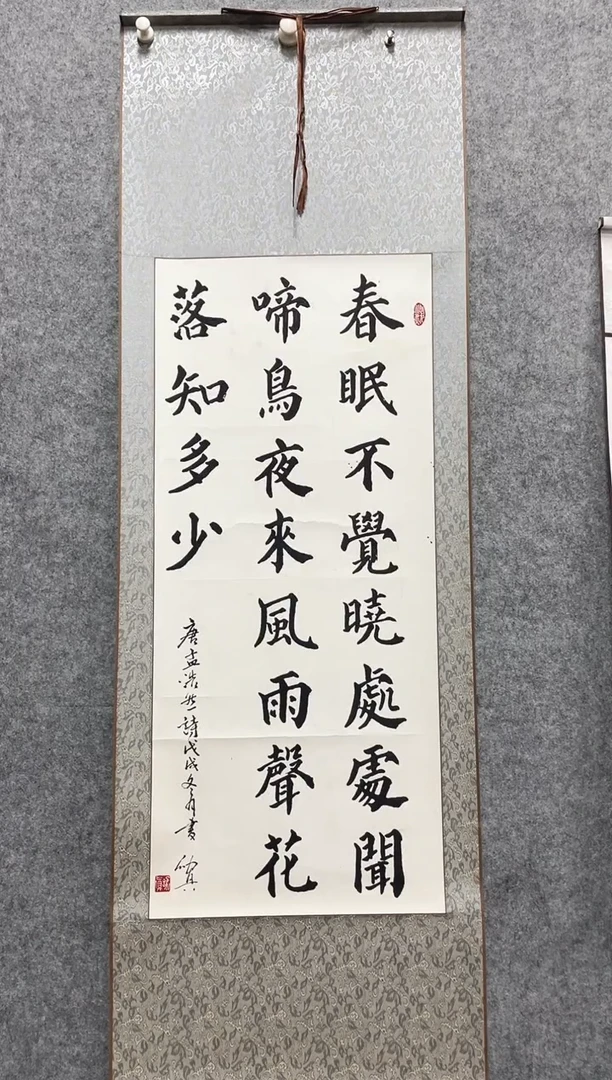 春眠不覺曉處處聞
啼鳥夜來風雨聲花
落知多少
唐孟浩然詩戊戌冬月書